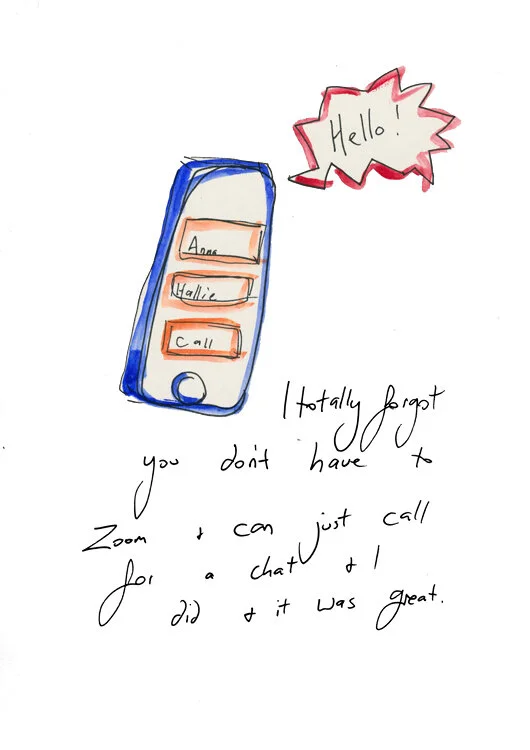 Hello!
Anna
Hallie
Call
I totally forgot
you don't have to
Zoom & can just call
for a chat & I
did & it was great.